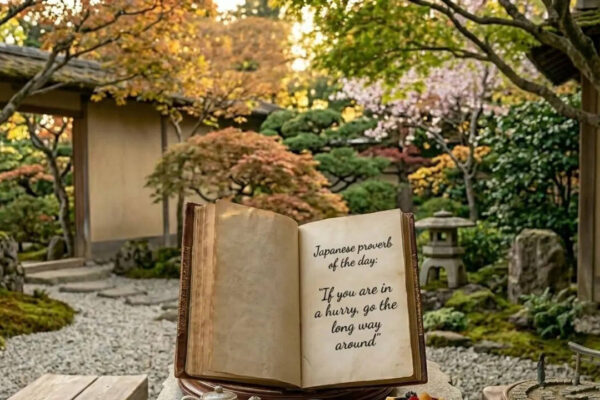 Japanese proverb
of the day:
"If you are in
a hurry, go the
long way
around"